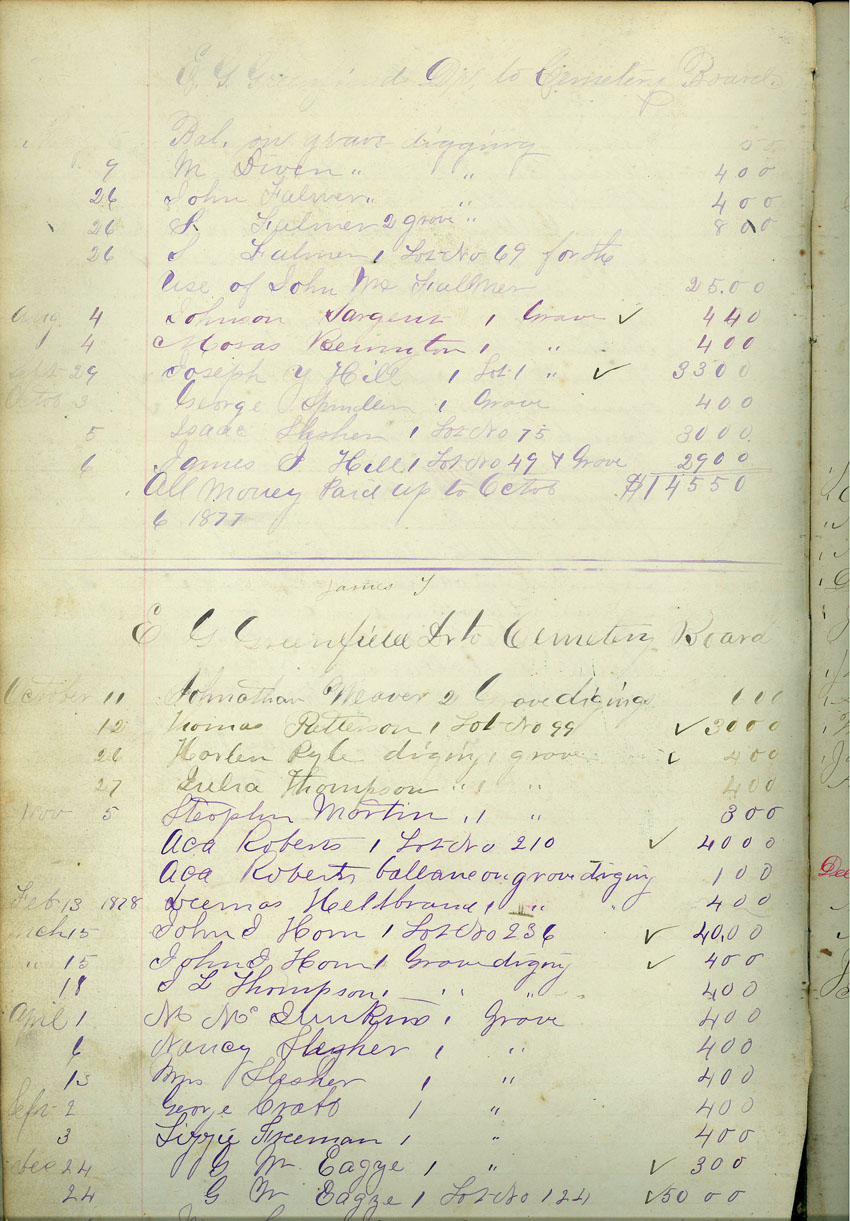 E G Dr. to Cemetery Board
Bal. on grave digging 50
9 M Diven " " 400
26 John Fulmer " " 400
26 S Fulmer 2 grove " 800
26 S Fulmer 1 Lot No 69 for the
use of John Mc Fullmer 25.00
Aug 4 Johnson Sargent 1 Grave ✓ 440
4 Moras 1 " 400
Sept 29 Joseph Y Hill 1 Lot 1 " ✓ 3300
Octob 3 George Spindler 1 Grove 400
5 Isaac Slesher 1 Lot No 75 3000
6 James I Hill 1 Lot No 49 & Grove 2900
All Money Paid up to Octob $14550
6 1877
James Y
E G Greenfield Dr to Cemetery Board
October 11 Johnathan Weaver 2 Gravediging
12 Thomas Patterson 1 Lot No 99 ✓ 3000
26 Harlen Pyle diging 1 grove ✓ 400
27 Julia Thompson " 1 " 400
Nov 5 Stephen Martin " 1 " 300
Aca Roberts 1 Lot No 210 ✓ 4000
Aca Roberts ballance on grove diging 100
Feb 13 1878 Heltbrand 1 " " 400
Mch 15 John I Horn 1 Lot No 236 ✓ 40.00
" 15 John I Horn 1 Grave diging ✓ 400
18 I L Thompson 1 " " 400
April 1 Mc 1 Grove 400
6 Nancy Slesher 1 " 400
13 Mrs Slesher 1 " 400
Sept 2 George 1 " 400
3 Lizzie Freeman 1 " 400
Dec 24 G W Eagze 1 " ✓ 300
24 G W Eagze 1 Lot No 124 ✓ 5000
Dec